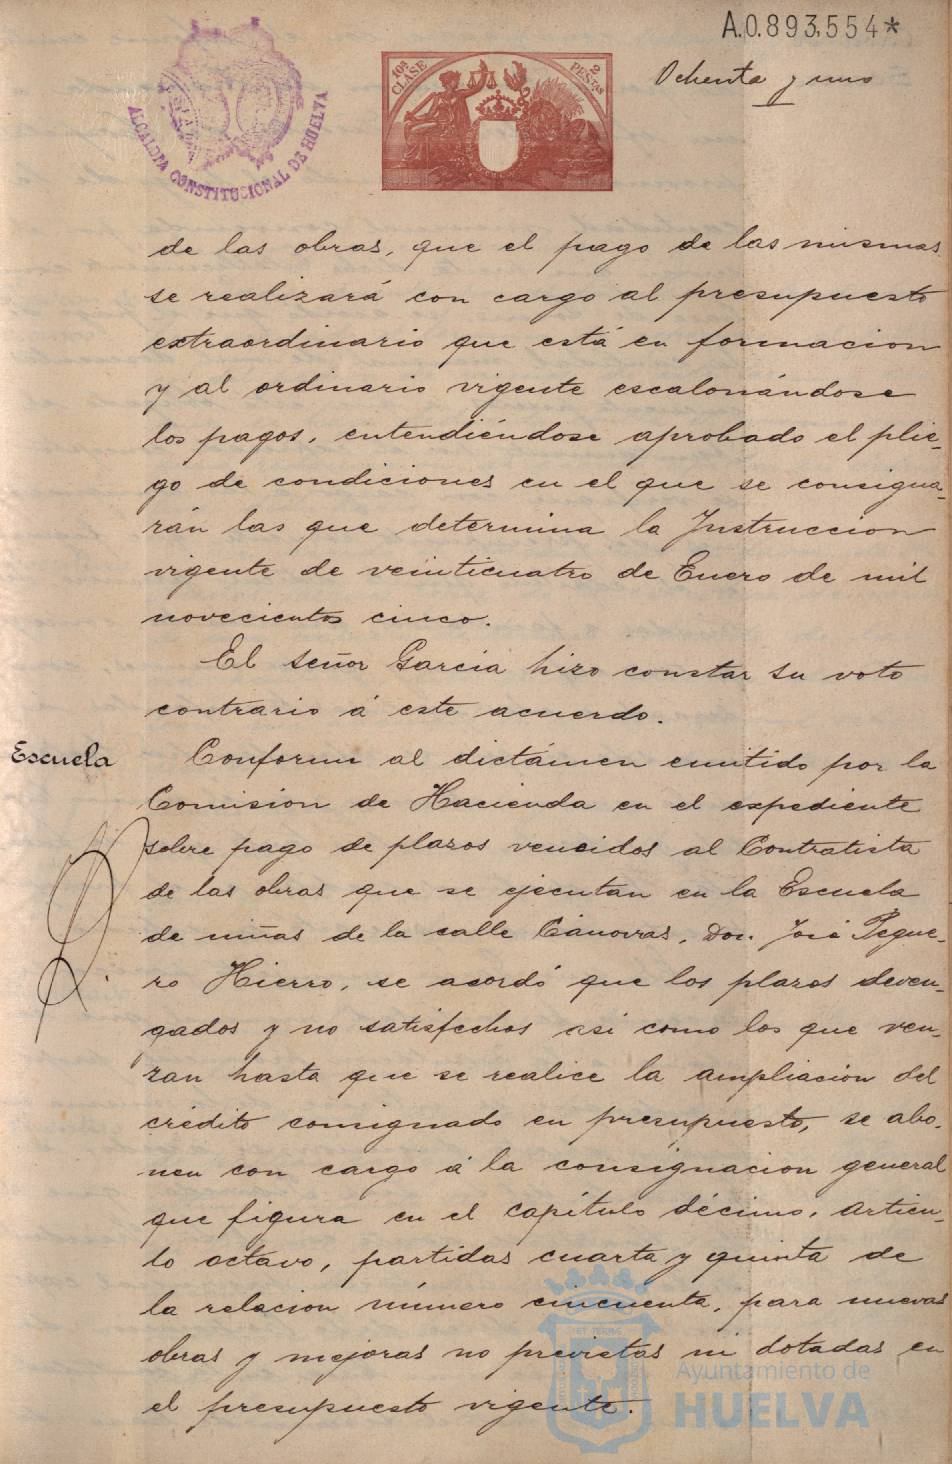 A.0.893.554*
ALCALDIA CONSTITUCIONAL DE HUELVA
10ª CLASE
2 PESETAS
Ochenta y uno
de las obras, que el pago de las mismas
se realizará con cargo al presupuesto
extraordinario que está en formacion
y al ordinario vigente escalonándose
los pagos, entendiéndose aprobado el plie-
go de condiciones en el que se consigna-
rán las que determina la Instruccion
vigente de veinticuatro de Enero de mil
novecientos cinco.
El señor Garcia hizo constar su voto
contrario á este acuerdo.
Escuela
Conforme al dictámen emitido por la
Comision de Hacienda en el expediente
sobre pago de plazos vencidos al Contratista
de las obras que se ejecutan en la Escuela
de niñas de la calle Cánovas, Don José Pegue-
ro Hierro, se acordó que los plazos deven-
gados y no satisfechos asi como los que ven-
zan hasta que se realice la ampliacion del
crédito consignado en presupuesto, se abo-
nen con cargo á la consignacion general
que figura en el capítulo décimo, artícu-
lo octavo, partidas cuarta y quinta de
la relacion número cincuenta, para nuevas
obras y mejoras no previstas ni dotadas en
el presupuesto vigente.
Ayuntamiento de
HUELVA